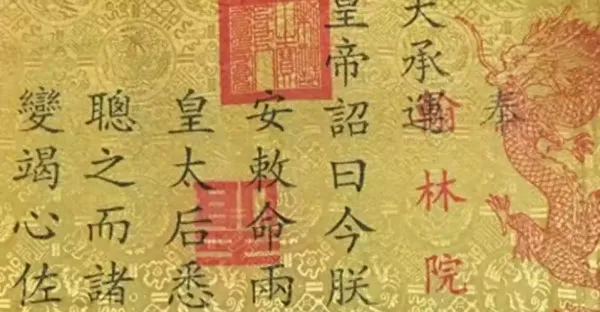 奉
翰林院
天承運
皇帝詔曰今朕
安敕命兩
皇太后悉
聰之而諸
變竭心佐